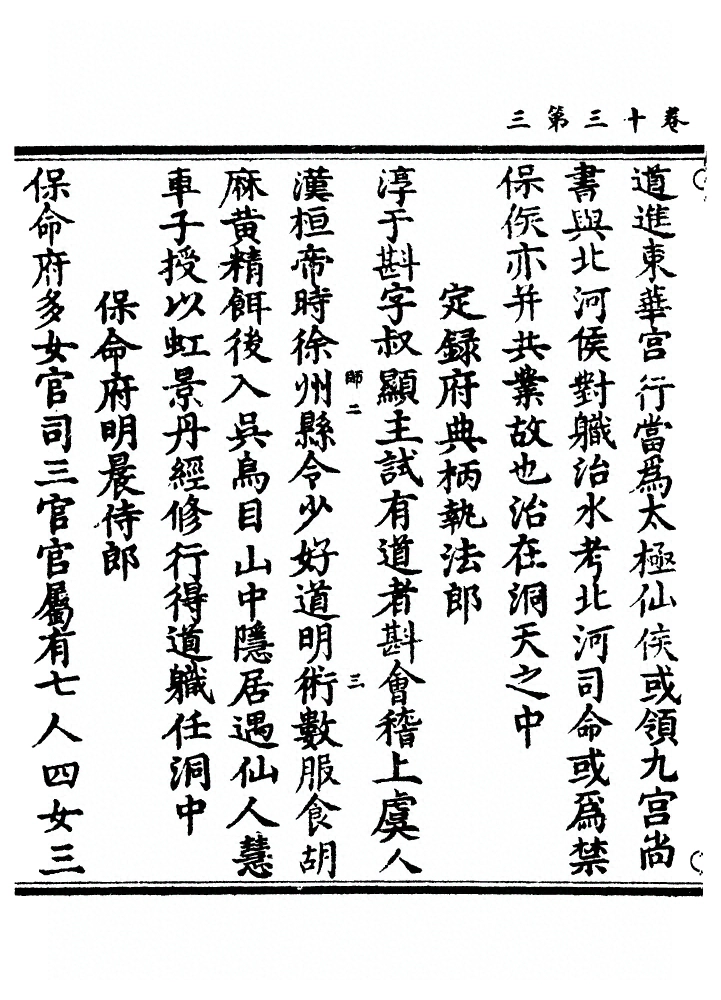 三第三十卷
道進東華宮行當爲太極仙侯或領九宮尚
書與北河侯對職治水考北河司命或爲禁
保侯亦并共業故也治在洞天之中
定録府典柄執法郎
淳于斟字叔顯主試有道者斟會稽上虞人
師二
三
漢桓帝時徐州縣令少好道明術數服食胡
麻黄精餌後入吳烏目山中隱居遇仙人慧
車子授以虹景丹經修行得道職任洞中
保命府明晨侍郎
保命府多女官司三官官屬有七人四女三